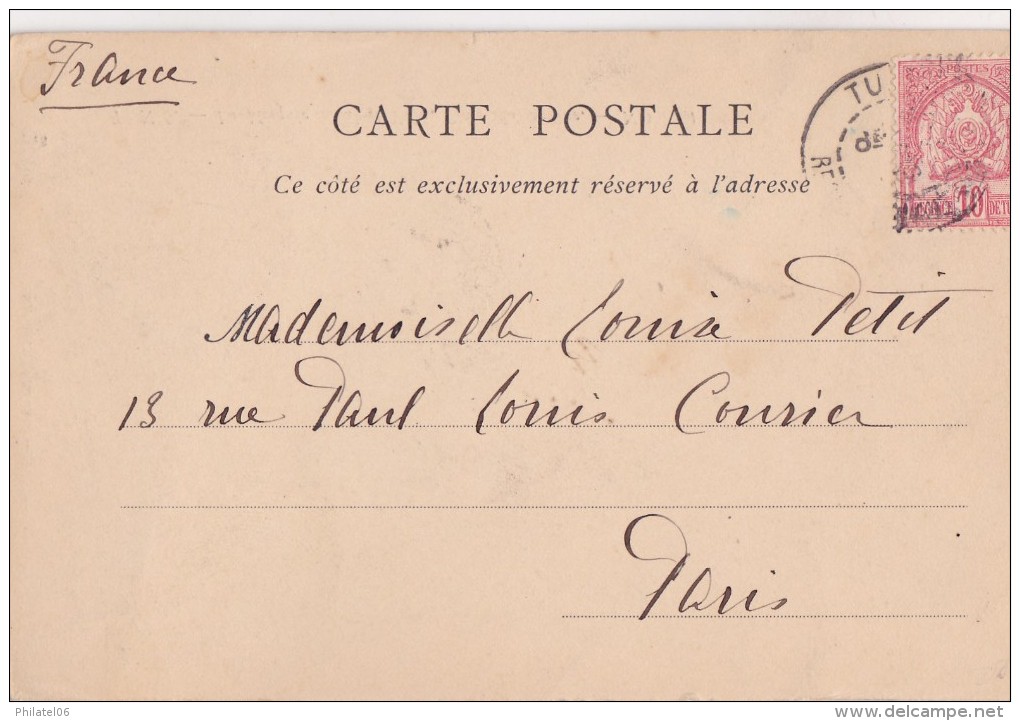 France
CARTE POSTALE
Ce côté est exclusivement réservé à l'adresse
TU
POSTES
10
Mademoiselle Louise Petit
13 rue Paul Louis Courier
Paris
Philatel06
www.delcampe.net